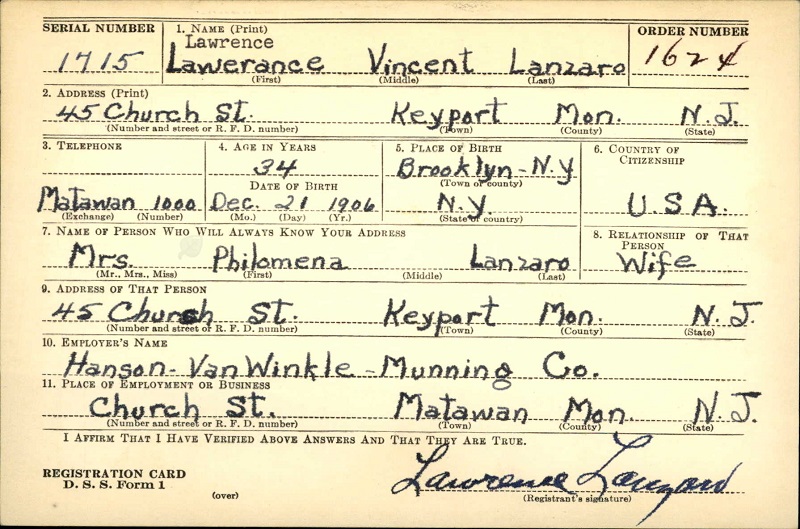 SERIAL NUMBER 1. NAME (Print) ORDER NUMBER
Lawrence
1715 Lawerance Vincent Lanzaro 1624
(First) (Middle) (Last)
2. ADDRESS (Print)
45 Church St. Keyport Mon. N.J.
(Number and street or R. F. D. number) (Town) (County) (State)
3. TELEPHONE 4. AGE IN YEARS 5. PLACE OF BIRTH 6. COUNTRY OF CITIZENSHIP
34 Brooklyn - N.Y
DATE OF BIRTH (Town or county)
Matawan 1000 Dec. 21 1906 N.Y. U.S.A.
(Exchange) (Number) (Mo.) (Day) (Yr.) (State or country)
7. NAME OF PERSON WHO WILL ALWAYS KNOW YOUR ADDRESS 8. RELATIONSHIP OF THAT PERSON
Mrs. Philomena Lanzaro Wife
(Mr., Mrs., Miss) (First) (Middle) (Last)
9. ADDRESS OF THAT PERSON
45 Church St. Keyport Mon. N.J.
(Number and street or R. F. D. number) (Town) (County) (State)
10. EMPLOYER'S NAME
Hanson - Van Winkle - Munning Co.
11. PLACE OF EMPLOYMENT OR BUSINESS
Church St. Matawan Mon. N.J.
(Number and street or R. F. D. number) (Town) (County) (State)
I AFFIRM THAT I HAVE VERIFIED ABOVE ANSWERS AND THAT THEY ARE TRUE.
REGISTRATION CARD
D. S. S. Form 1
(over)
Lawrence Lanzaro
(Registrant's signature)